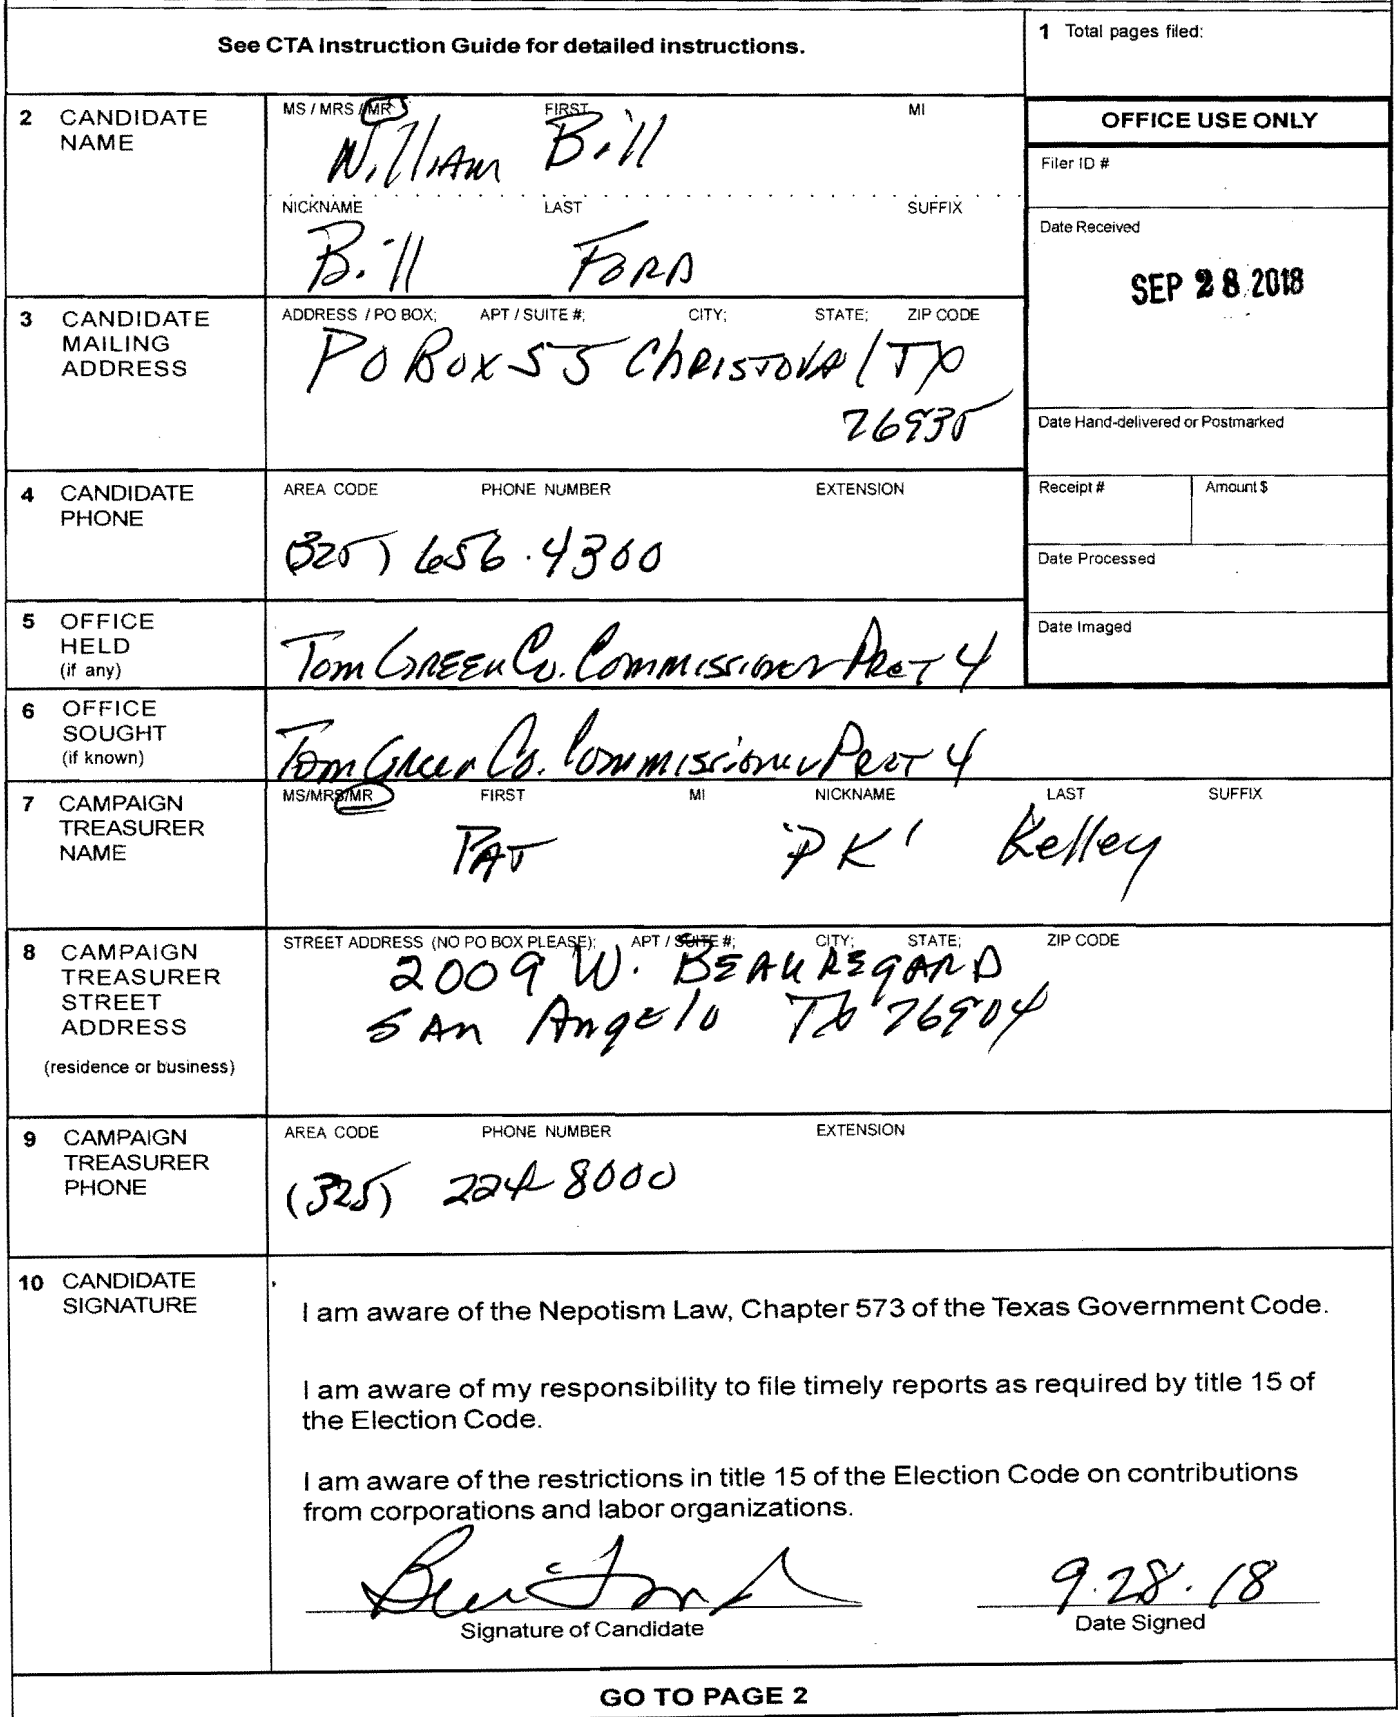 See CTA Instruction Guide for detailed instructions.
1 Total pages filed:
2 CANDIDATE NAME
MS / MRS / MR FIRST MI
William Bill
NICKNAME LAST SUFFIX
Bill Ford
OFFICE USE ONLY
Filer ID #
Date Received
SEP 28 2018
Date Hand-delivered or Postmarked
Receipt # Amount $
Date Processed
Date Imaged
3 CANDIDATE MAILING ADDRESS
ADDRESS / PO BOX; APT / SUITE #; CITY; STATE; ZIP CODE
PO Box 55 Christoval TX
76935
4 CANDIDATE PHONE
AREA CODE PHONE NUMBER EXTENSION
(325) 656.4300
5 OFFICE HELD (if any)
Tom Green Co. Commissioner Prct 4
6 OFFICE SOUGHT (if known)
Tom Green Co. Commissioner Prct 4
7 CAMPAIGN TREASURER NAME
MS/MRS/MR FIRST MI NICKNAME LAST SUFFIX
PAT 'PK' Kelley
8 CAMPAIGN TREASURER STREET ADDRESS
(residence or business)
STREET ADDRESS (NO PO BOX PLEASE); APT / SUITE #; CITY; STATE; ZIP CODE
2009 W. BEAUREGARD
SAn Angelo TX 76904
9 CAMPAIGN TREASURER PHONE
AREA CODE PHONE NUMBER EXTENSION
(325) 224 8000
10 CANDIDATE SIGNATURE
I am aware of the Nepotism Law, Chapter 573 of the Texas Government Code.
I am aware of my responsibility to file timely reports as required by title 15 of
the Election Code.
I am aware of the restrictions in title 15 of the Election Code on contributions
from corporations and labor organizations.
Bill Ford 9.28.18
Signature of Candidate Date Signed
GO TO PAGE 2